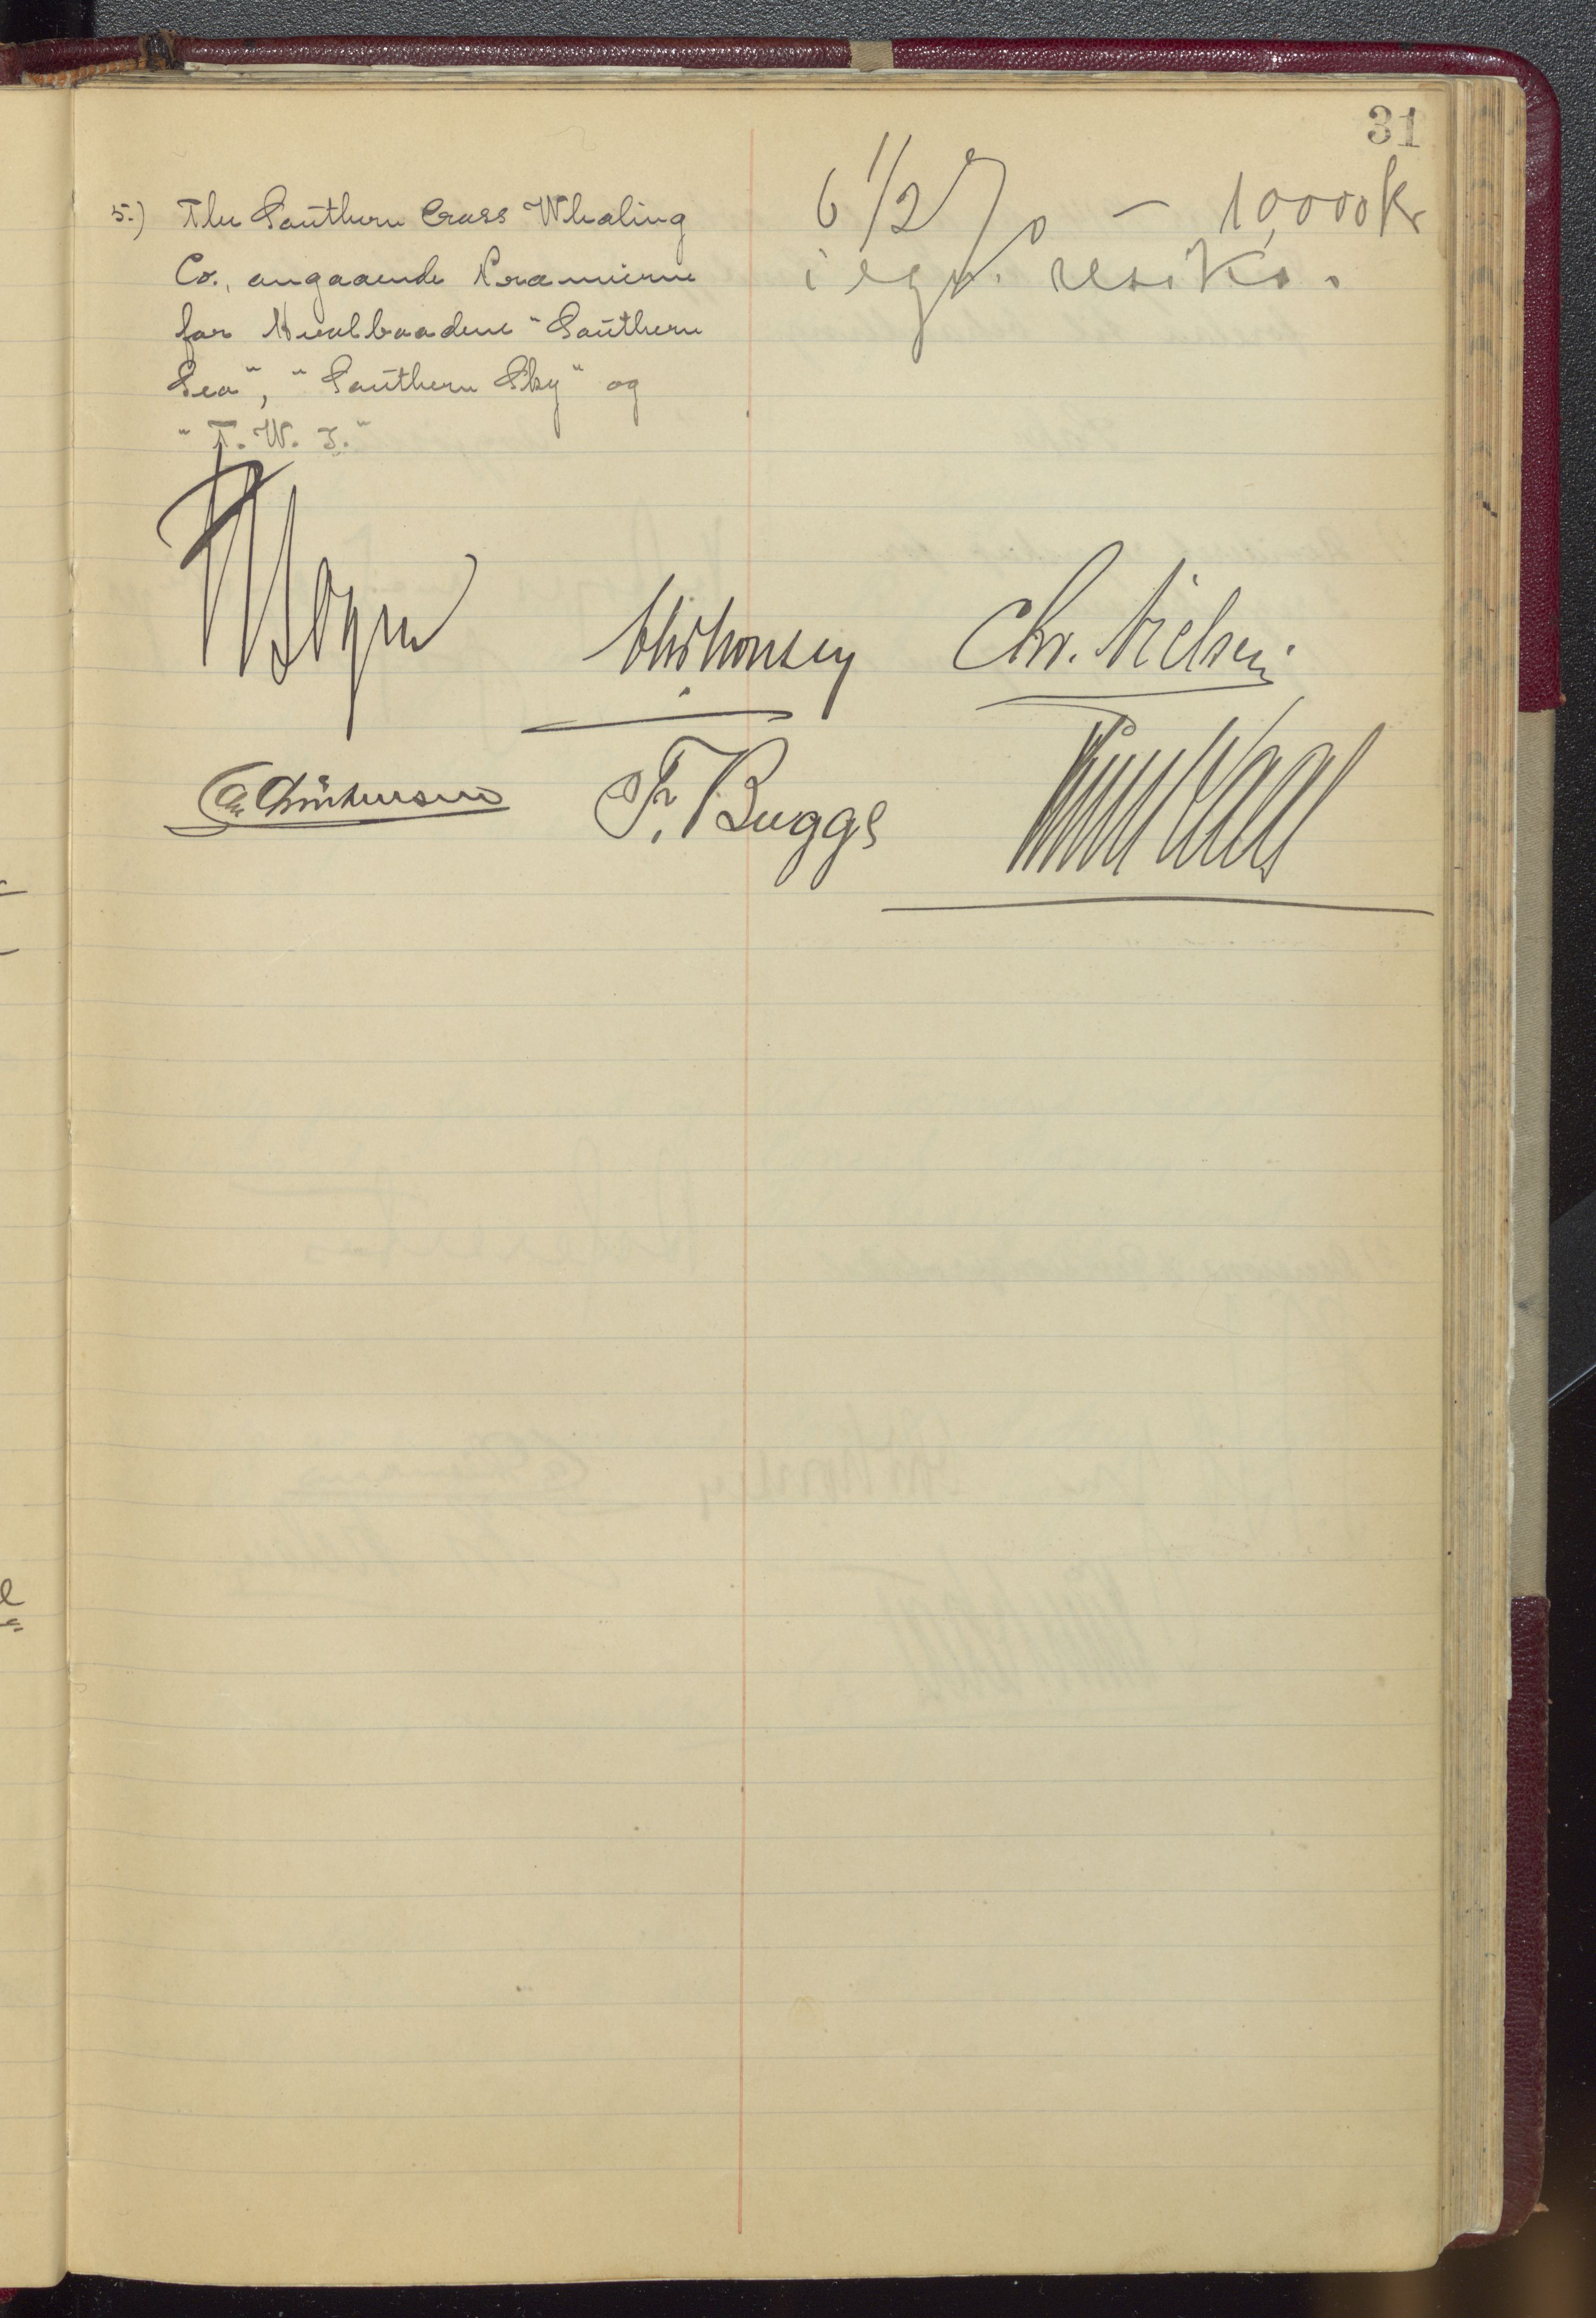 31
5.) The Southern Cross Whaling
Co., angaaende Præmierne
for Hvalbaadene "Southern
Sea", "Southern Sky" og
"T. W. I."
6 1/2 % — 10,000 Kr
i egn. resiko.
Chr. Nielsen
Fr. Bugge